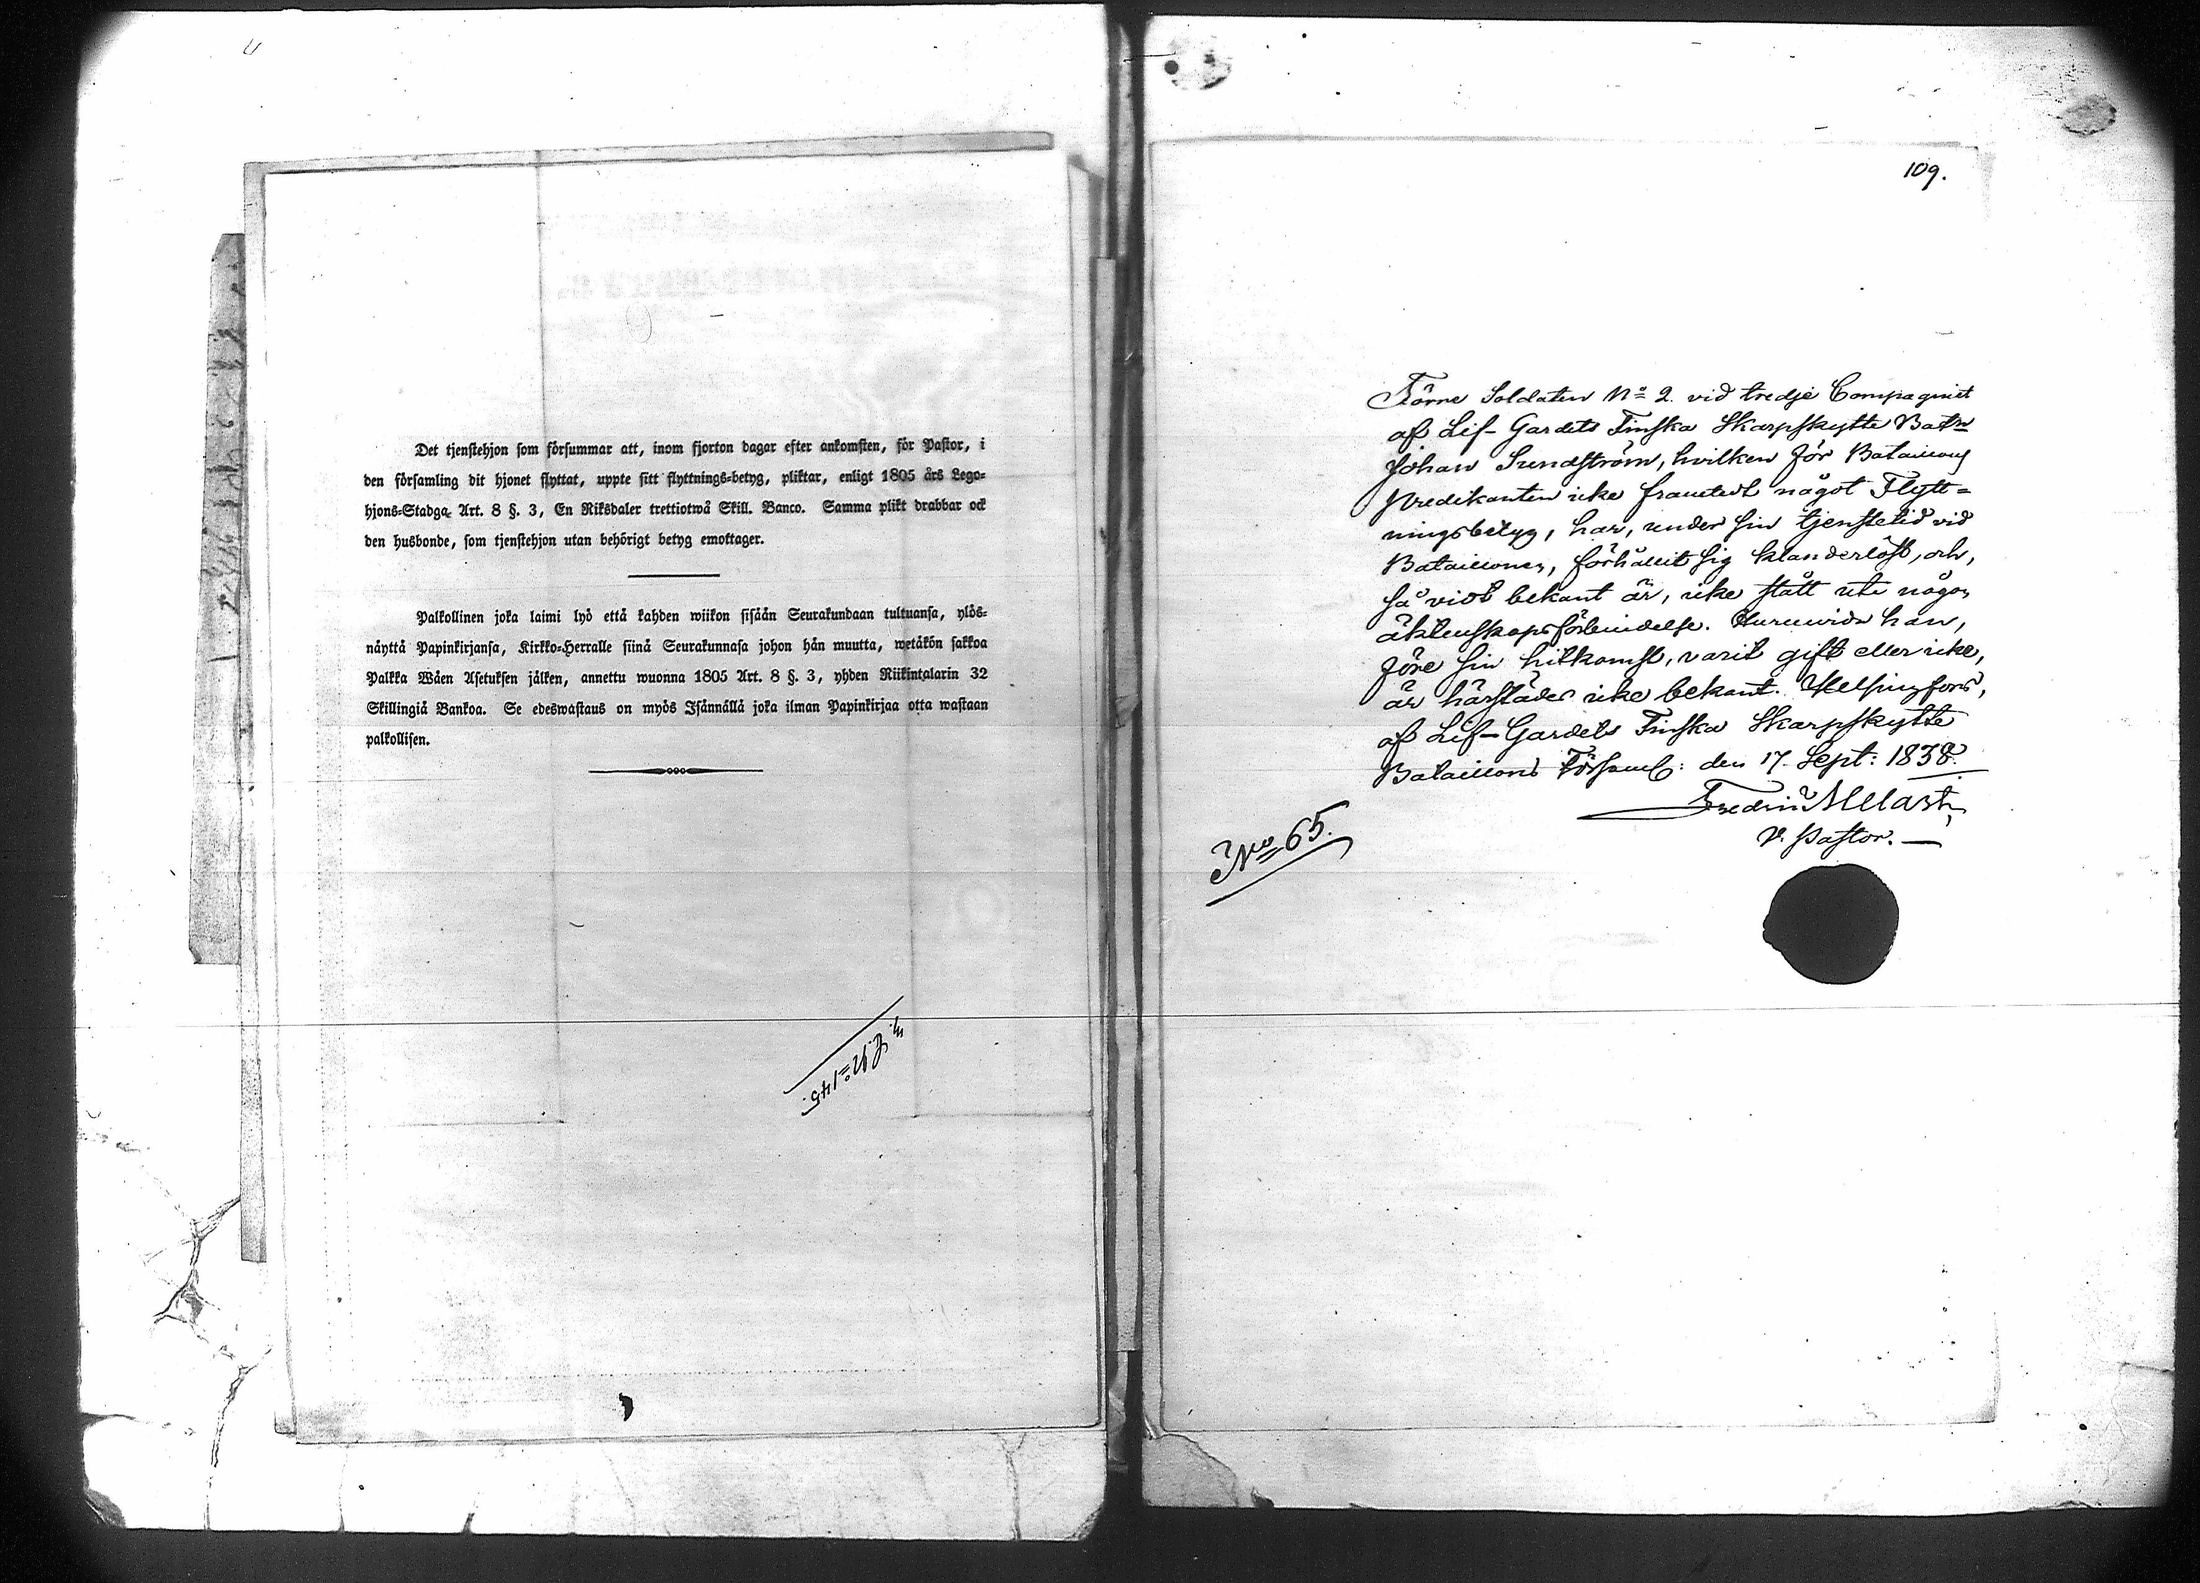 Det tjenstehjon som försummar att, inom fjorton dagar efter ankomsten, för Pastor, i
den församling dit hjonet flyttat, uppte sitt flyttnings-betyg, pliktar, enligt 1805 års Lego-
hjons-Stadga Art. 8 §. 3, En Riksdaler trettiotwå Skill. Banco. Samma plikt drabbar ock
den husbonde, som tjenstehjon utan behörigt betyg emottager.
Palkollinen joka laimi lyö että kahden wiikon sisään Seurakundaan tultuansa, ylös-
näyttä Papinkirjansa, Kirkko-Herralle siinä Seurakunnasa johon hän muutta, wetäkön sakkoa
Palkka Wäen Asetuksen jälken, annettu wuonna 1805 Art. 8 §. 3, yhden Riikintalarin 32
Skillingiä Bankoa. Se edeswastaus on myös Isännällä joka ilman Papinkirjaa otta wastaan
palkollisen.
N:o 145.
109.
Förre Soldaten No 2. vid tredje Compagniet
af Lif-Gardets Finska Skarpskytte Batn
Johan Sundström, hvilken för Bataillons
Predikanten icke framtedt något Flytt=
ningsbetyg, har, under sin tjenstetid vid
Bataillonen, förhållit sig klanderlöst, och,
så vidt bekant är, icke stått uti någon
äktenskapsförbindelse. Huruvida han,
före sin hitkomst, varit gift eller icke,
är härstädes icke bekant. Helsingfors,
af Lif-Gardets Finska Skarpskytte
Bataillons Församl: den 17. Sept: 1838.
V. Pastor.
No 65.